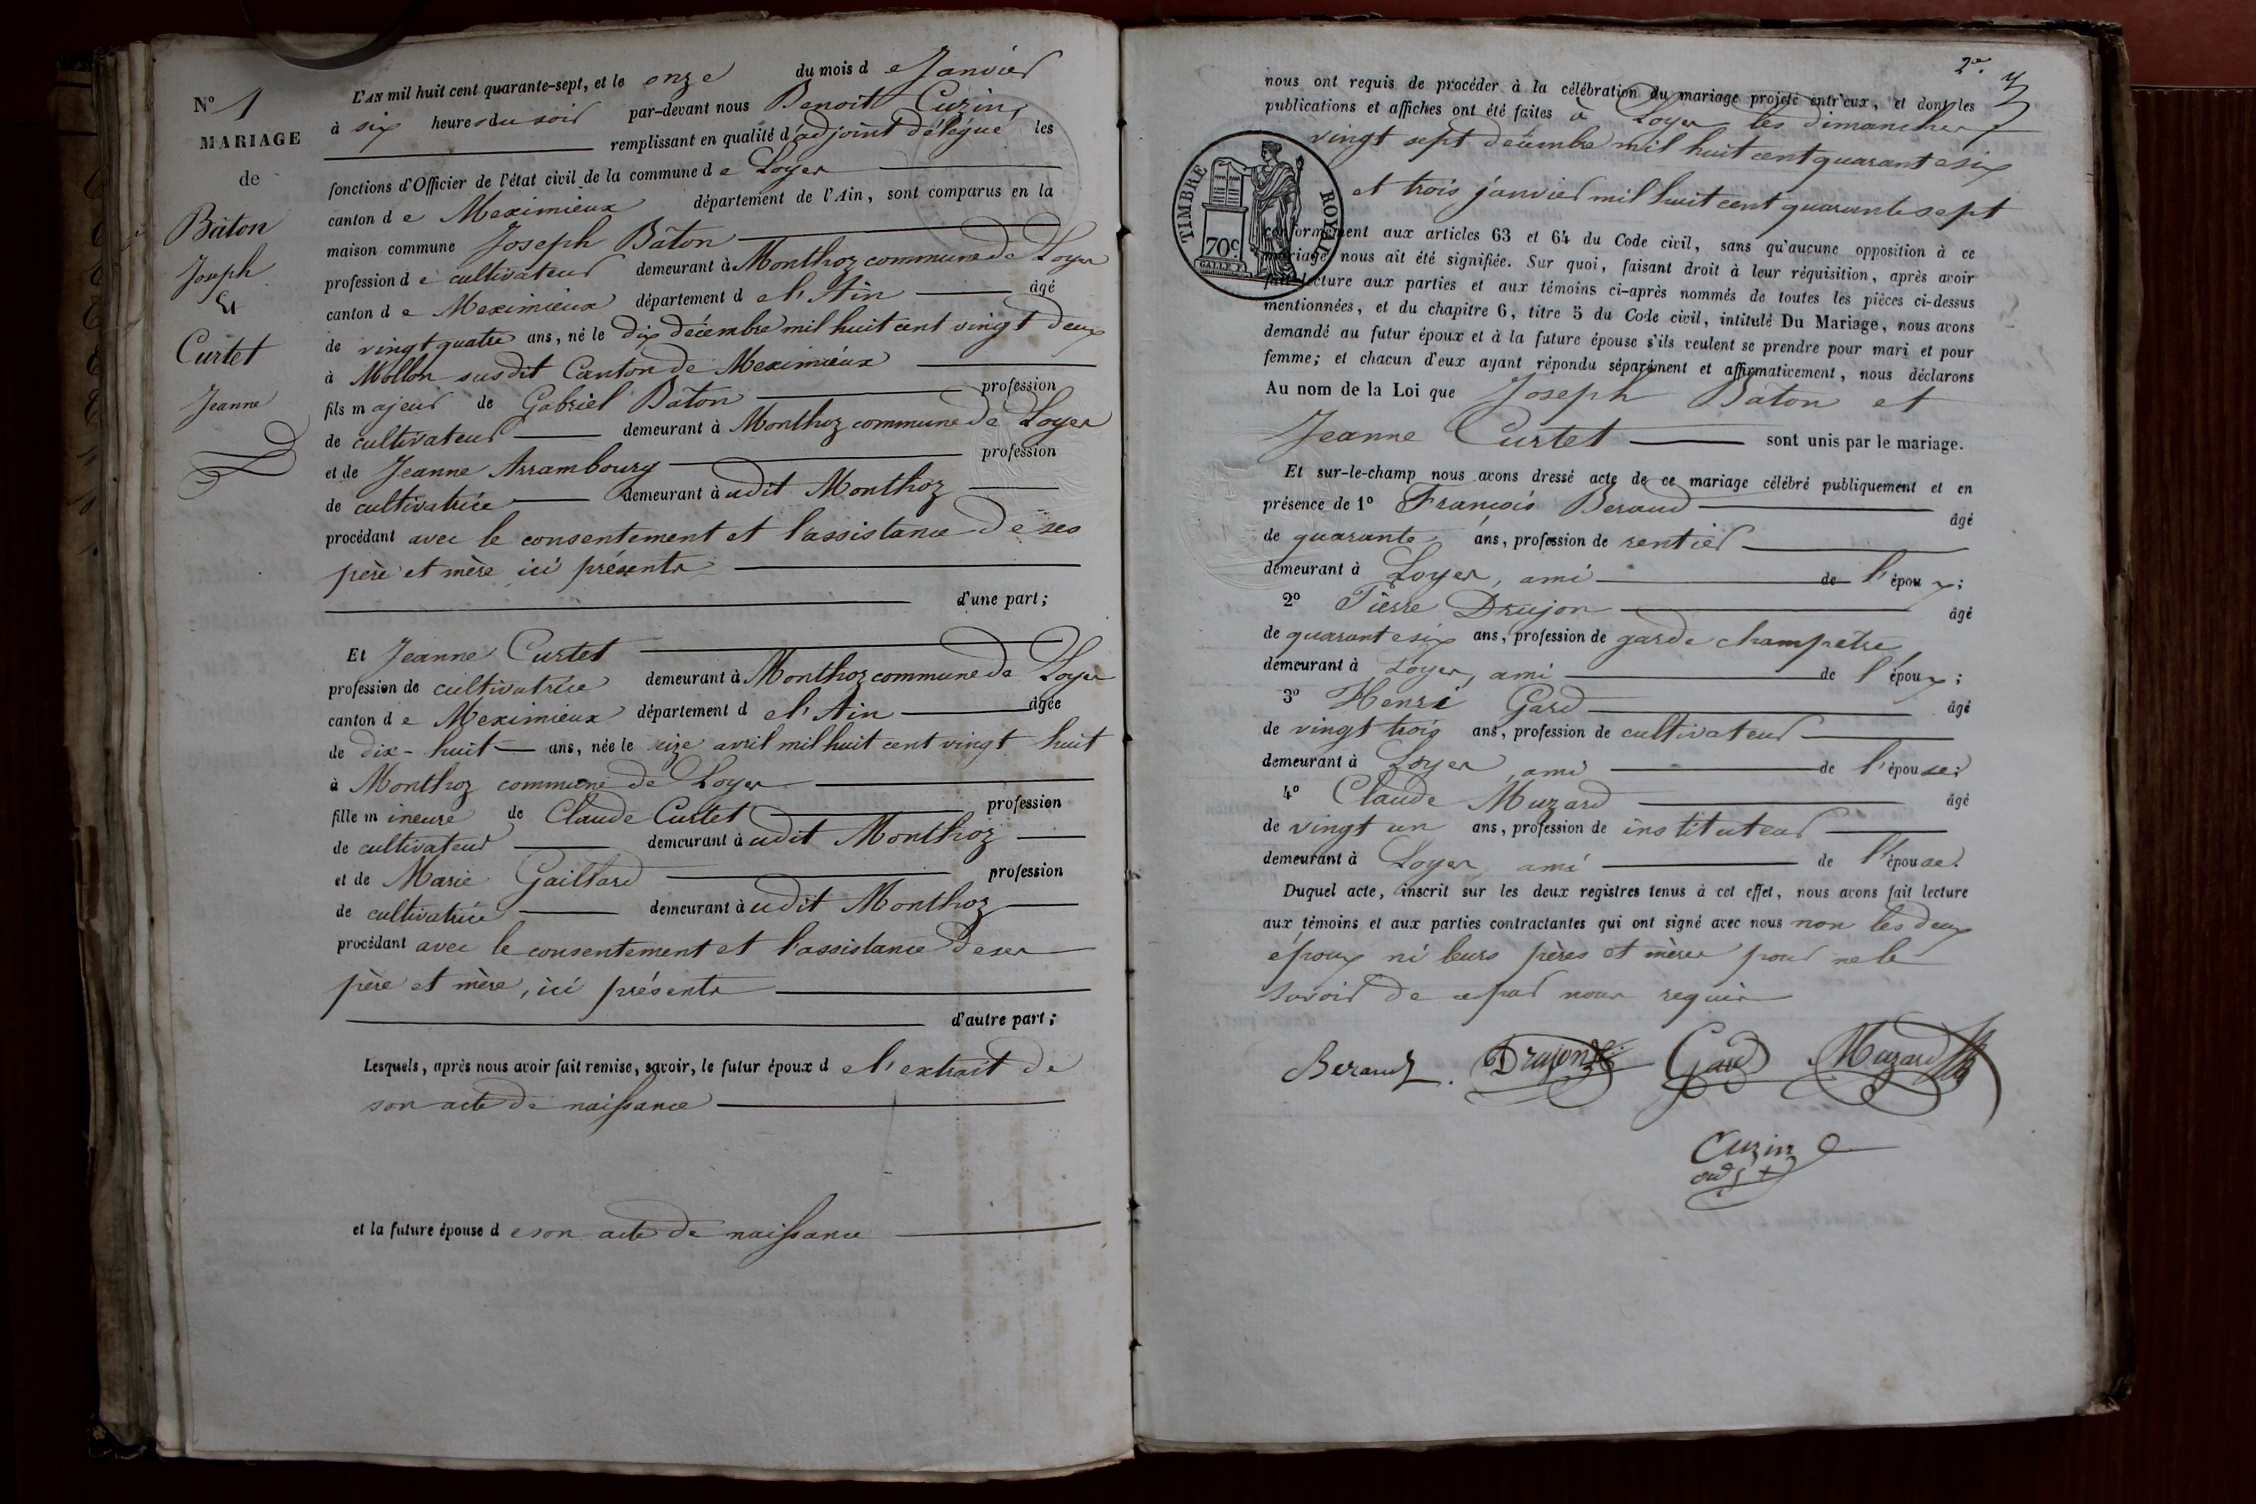 N° 1
MARIAGE
de
Bâton
Joseph
&
Curtet
Jeanne
L'AN mil huit cent quarante-sept, et le onze du mois de Janvier
à six heures du soir par-devant nous Benoit Cuzin,
remplissant en qualité d'adjoint délégué les
fonctions d'Officier de l'état civil de la commune de Loyes
canton de Meximieux département de l'Ain, sont comparus en la
maison commune Joseph Bâton
profession de cultivateur demeurant à Monthoz commune de Loyes
canton de Meximieux département de l'Ain âgé
de vingt quatre ans, né le dix décembre mil huit cent vingt deux
à Mollon susdit Canton de Meximieux
fils majeur de Gabriel Bâton profession
de cultivateur demeurant à Monthoz commune de Loyes
et de Jeanne Arrambourg profession
de cultivatrice demeurant audit Monthoz
procédant avec le consentement et l'assistance de ses
père et mère ici présents
d'une part;
Et Jeanne Curtet
profession de cultivatrice demeurant à Monthoz commune de Loyes
canton de Meximieux département de l'Ain âgée
de dix-huit ans, née le seize avril mil huit cent vingt huit
à Monthoz commune de Loyes
fille mineure de Claude Curtet profession
de cultivateur demeurant audit Monthoz
et de Marie Gaillard profession
de cultivatrice demeurant audit Monthoz
procédant avec le consentement et l'assistance de ses
père et mère, ici présents
d'autre part;
Lesquels, après nous avoir fait remise, savoir, le futur époux de l'extrait de
son acte de naissance
et la future épouse de son acte de naissance
2e.
nous ont requis de procéder à la célébration du mariage projeté entr'eux, et dont les
publications et affiches ont été faites à Loyes les dimanches
vingt sept décembre mil huit cent quarante six
et trois janvier mil huit cent quarante sept
TIMBRE ROYAL
70c
conformément aux articles 63 et 64 du Code civil, sans qu'aucune opposition à ce
mariage nous ait été signifiée. Sur quoi, faisant droit à leur réquisition, après avoir
fait lecture aux parties et aux témoins ci-après nommés de toutes les pièces ci-dessus
mentionnées, et du chapitre 6, titre 5 du Code civil, intitulé Du Mariage, nous avons
demandé au futur époux et à la future épouse s'ils veulent se prendre pour mari et pour
femme; et chacun d'eux ayant répondu séparément et affirmativement, nous déclarons
Au nom de la Loi que Joseph Bâton et
Jeanne Curtet sont unis par le mariage.
Et sur-le-champ nous avons dressé acte de ce mariage célébré publiquement et en
présence de 1° François Beraud âgé
de quarante ans, profession de rentier
demeurant à Loyes, ami de l'époux;
2° Pierre Drujon âgé
de quarante six ans, profession de garde champêtre
demeurant à Loyes, ami de l'époux;
3° Henri Gard âgé
de vingt trois ans, profession de cultivateur
demeurant à Loyes, ami de l'épouse;
4° Claude Muzard âgé
de vingt un ans, profession de instituteur
demeurant à Loyes, ami de l'épouse.
Duquel acte, inscrit sur les deux registres tenus à cet effet, nous avons fait lecture
aux témoins et aux parties contractantes qui ont signé avec nous non les deux
époux ni leurs pères et mères pour ne le
savoir de ce par nous requis
Beraud. Drujon Gard Muzard
Cuzin
adjt